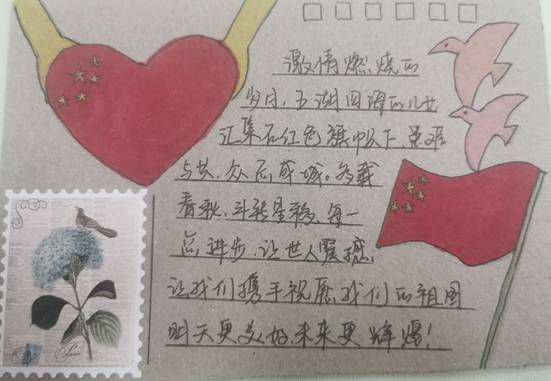 激情燃烧的
岁月，五湖四海的儿女
汇集在红色旗帜下，患难
与共，众志成城。多载
春秋，斗转星移，每一
点进步，让世人震撼，
让我们携手祝愿我们的祖国
明天更美好，未来更辉煌！